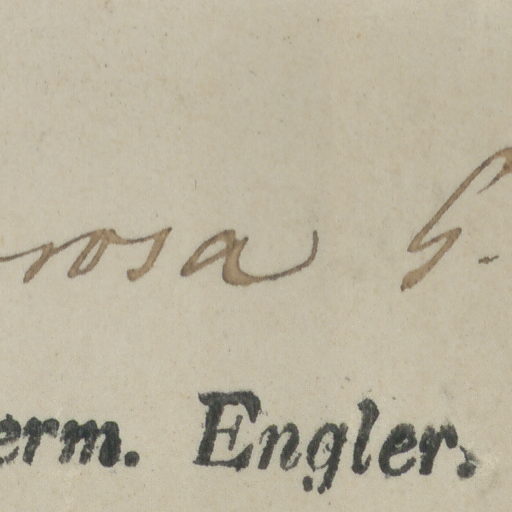 rosa
erm. Engler.